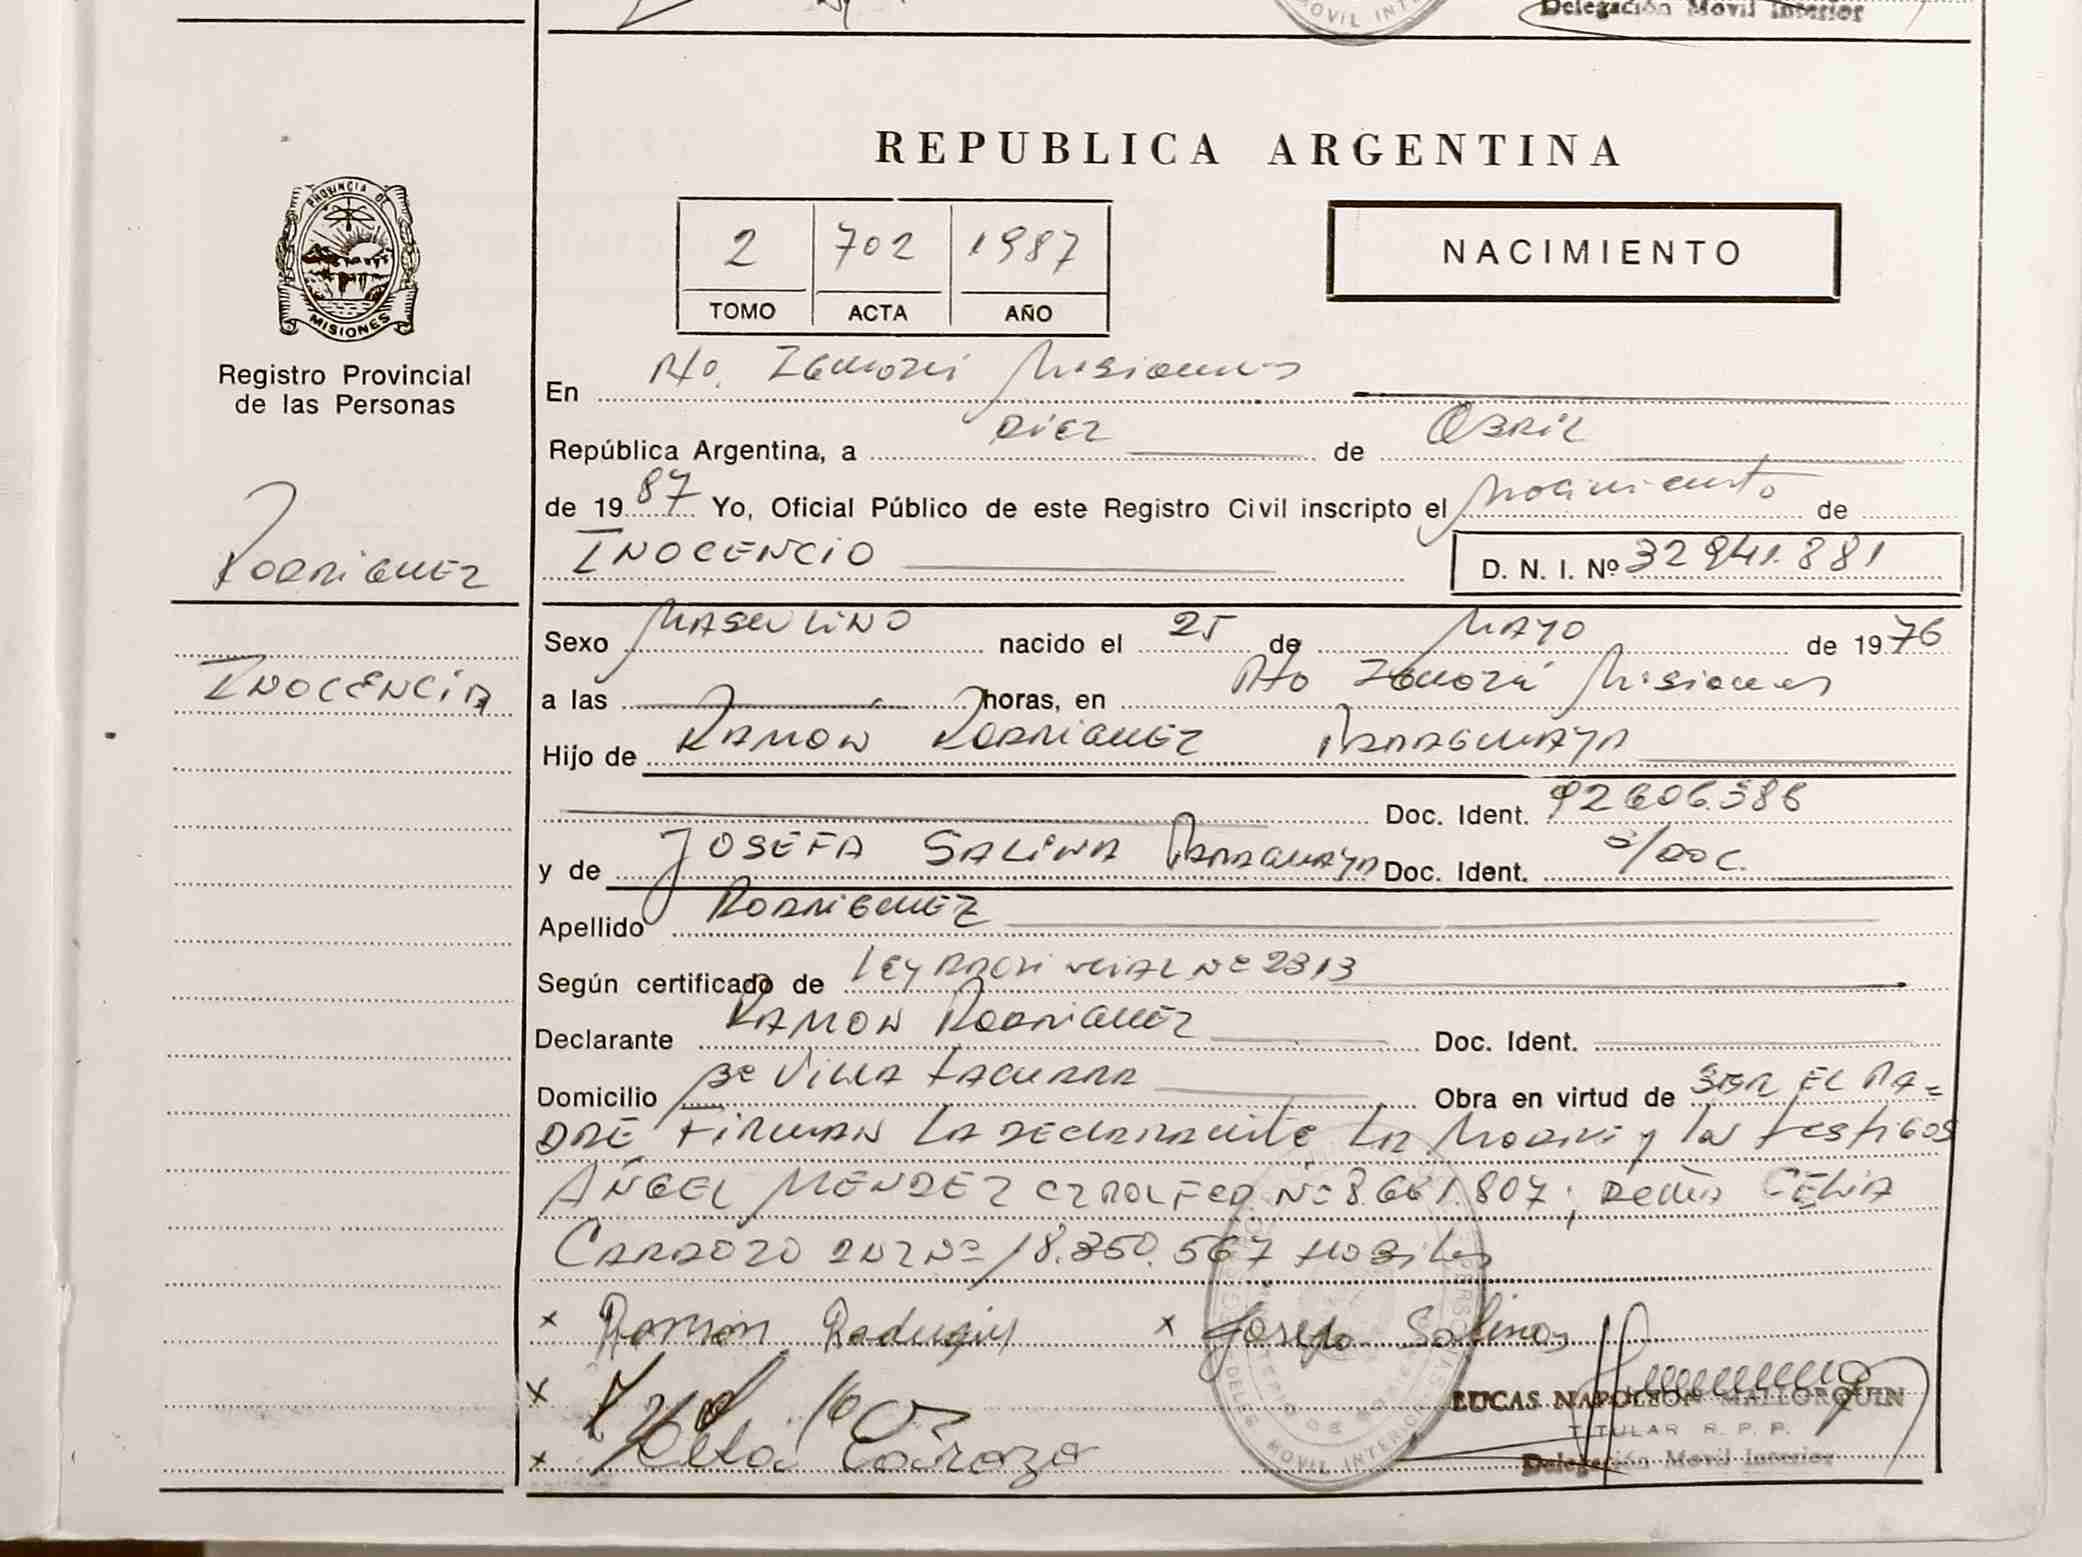 MOVIL INT
Delegación Movil Interior
REPUBLICA ARGENTINA
PROVINCIA DE
MISIONES
Registro Provincial
de las Personas
2 702 1987
TOMO ACTA AÑO
NACIMIENTO
En Pto. Misiones
República Argentina, a Diez de Abril
de 1987 Yo, Oficial Público de este Registro Civil inscripto el Nacimiento de
RODRIGUEZ
INOCENCIO D. N. I. Nº 32 941.881
INOCENCIA
Sexo MASCULINO nacido el 25 de MAYO de 1976
a las horas, en Pto Misiones
Hijo de RAMON RODRIGUEZ PARAGUAYA
Doc. Ident. 92606.386
y de JOSEFA SALINA PARAGUAYA Doc. Ident. S/DOC.
Apellido RODRIGUEZ
Según certificado de LEY PROVINCIAL Nº 2313
Declarante RAMON RODRIGUEZ Doc. Ident.
Domicilio Bº VILLA Obra en virtud de SER EL PA=
DRE FIRMAN LA DECLARANTE LA MADRE y los testigos
ANGEL MENDEZ Nº 8.661.807; CELIA
CARDOZO DNI Nº 18.350.567
x Ramon x Josefa Salinas
x
x Celia Cardozo
LUCAS NAPOLEON MALLORQUIN
TITULAR R. P. P.
Delegación Movil Interior